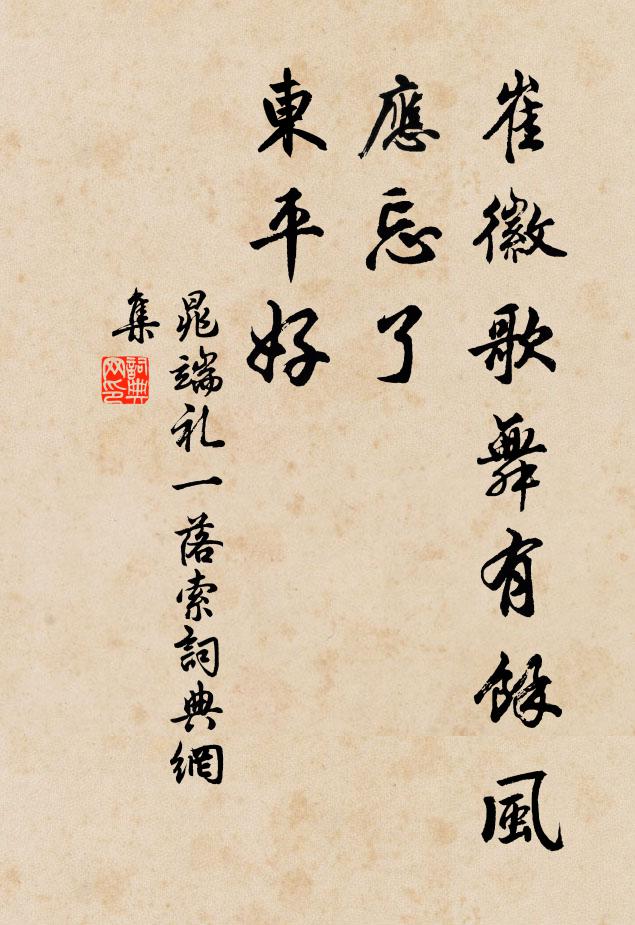 崔徽歌舞有餘風
應忘了
東平好
晁端礼一落索詞典網
集
詞典
网印